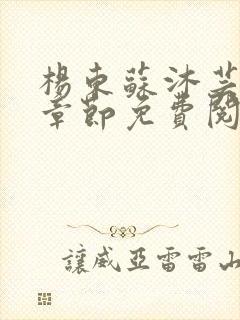 楊東蘇沐芸
章節免費閱
讓威亞雷雷山